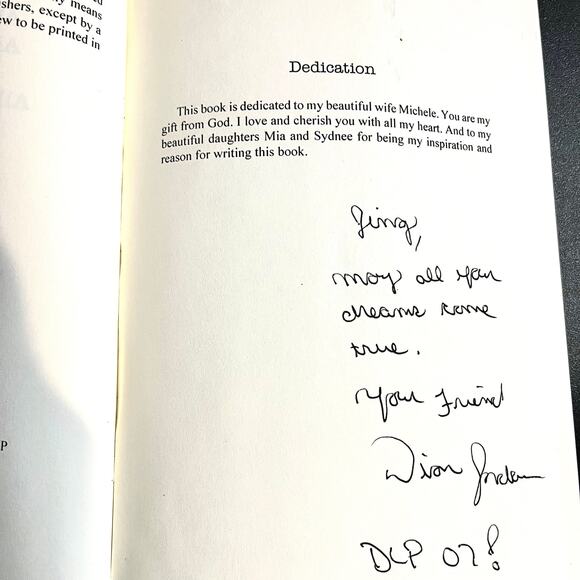 means
shers, except by a
ew to be printed in
P
Dedication
This book is dedicated to my beautiful wife Michele. You are my
gift from God. I love and cherish you with all my heart. And to my
beautiful daughters Mia and Sydnee for being my inspiration and
reason for writing this book.
Jing,
may all your
dreams come
true.
Your friend
Dion Jordan
DLP 07!